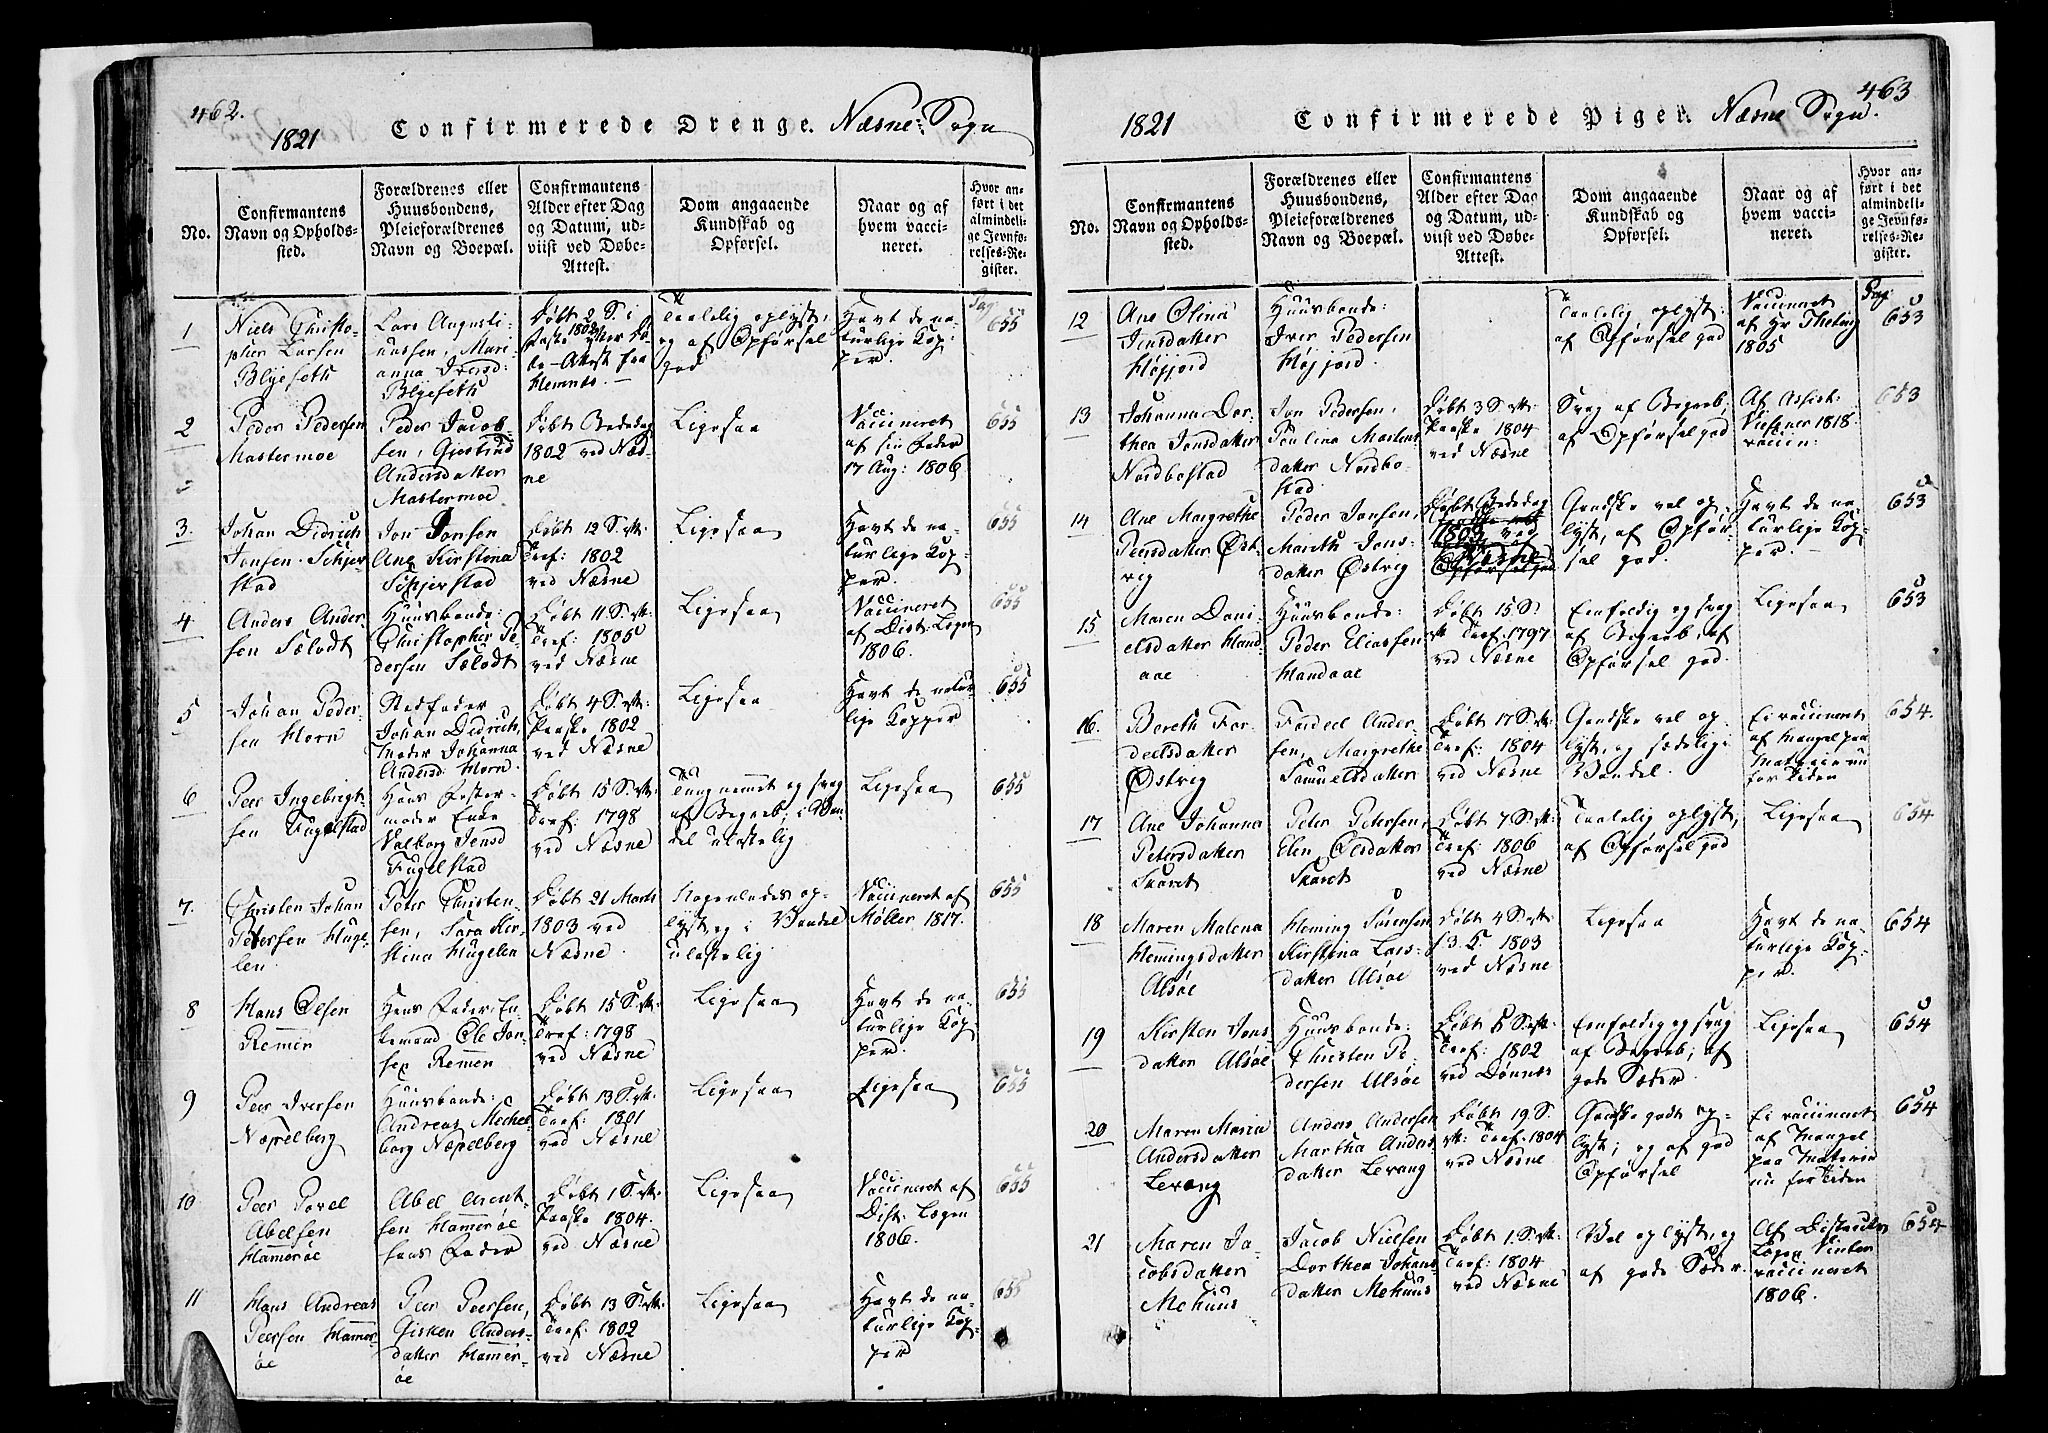 462.
1821 Confirmerede Drenge. Næsne: Sogn
No.
Confirmantens
Navn og Opholds-
sted.
Forældrenes eller
Huusbondens,
Pleieforældrenes
Navn og Boepæl.
Confirmantens
Alder efter Dag
og Datum, ud-
viist ved Døbe-
Attest.
Dom angaaende
Kundskab og
Opførsel.
Naar og af
hvem vacci-
neret.
Hvor an-
ført i det
almindeli-
ge Jevnfø-
relses-Re-
gister.
Pag:
1
Niels Christo-
pher Larsen
Blyeseth
Lars Augusti-
nussen, Mari-
anna Iversd:
Blyeseth
Døbt 2 S. i
Faste 1802 efter Dø-
be-Attest fra
Hemnes.
Taalelig oplyst,
og af Opførsel
god
Havt de na-
turlige Kop-
per.
655
2
Peder Pedersen
Mastermoe
Peder Jacob-
sen, Gjertrud
Andersdatter
Mastermoe
Døbt Bededag
1802 ved Næs-
ne
Ligesaa
Vaccineret
af sin Fader
17 Aug: 1806
655
3.
Johan Didrich
Jonsen Schjer-
stad
Jon Jonsen
Ane Kirstena
Schjerstad
Døbt 12 S. etr:
Tref: 1802
ved Næsne
Ligesaa
Havt de na-
turlige Kop-
per.
655
4
Anders Ander-
sen Sælodt
Huusbonde:
Christopher Pe-
dersen Sælodt
Døbt 11 S. etr:
Tref: 1805
ved Næsne
Ligesaa
Vaccineret
af Dist: Lægen
1806.
655
5
Johan Peder-
sen Horn
Stedfader
Johan Didrich,
Moder Johanna
Andersd: Horn.
Døbt 4 S. etr:
Paaske 1802
ved Næsne
Ligesaa
Havt de natur-
lige Kopper
655
6
Peer Ingebrigt-
sen Fugelstad
Hans Foster-
moder Enke
Valborg Jensd
Fugelstad
Døbt 15 S. etr:
Tref: 1798
ved Næsne
Tungnemmet og svag
af Begreb; i Van-
del ulastelig
Ligesaa
655
7.
Christen Johan
Petersen Huge-
len
Peter Christen-
sen, Sara Kir-
stina Hugelen
Døbt 21 Marts
1803 ved
Næsne
Nogenledes op-
lyst, og i Vandel
ulastelig
Vaccineret af
Møller 1817.
655
8
Hans Olsen
Remen
Hans Fader, En-
kemand Ole Jon-
sen Remen
Døbt 15 S. etr:
Tref: 1798
ved Næsne
Ligesaa
Havt de na-
turlige Kop-
per.
655
9
Peer Iversen
Næpelberg
Huusbonde:
Andreas Mechel-
borg Næpelberg
Døbt 13 S. etr:
Tref: 1801
ved Næsne
Ligesaa
Ligesaa
655
10
Peer Povel
Abelsen
Hamerøe
Abel Arent-
sen Hamerøe
hans Fader
Døbt 1 S. etr:
Paaske 1804.
ved Næsne
Ligesaa
Vaccineret af
Dist: Lægen
1806.
655
11
Hans Andreas
Peersen Hamer-
øe
Peer Peersen,
Gisken Anders-
datter Hamer-
øe
Døbt 13 S. etr:
Tref: 1802
ved Næsne
Ligesaa
Havt de na-
turlige Kop-
per
655
463
1821 Confirmerede Piger. Næsne Sogn.
No.
Confirmantens
Navn og Opholds-
sted.
Forældrenes eller
Huusbondens,
Pleieforældrenes
Navn og Boepæl.
Confirmantens
Alder efter Dag
og Datum, ud-
viist ved Døbe-
Attest.
Dom angaaende
Kundskab og
Opførsel.
Naar og af
hvem vacci-
neret.
Hvor an-
ført i det
almindeli-
ge Jevnfø-
relses-Re-
gister.
Pag:
12
Ane Olina
Jensdatter
Højjord
Huusbonde:
Iver Pedersen
Højjord.
Taalelig oplyst
af Opførsel god
Vaccineret
af Hr Theting
1805
653
13
Johanna Dor-
thea Jonsdatter
Nordbostad
Jon Pedersen,
Paulina Martens
datter Nordbo-
stad.
Døbt 3 S. etr:
Paaske 1804
ved Næsne
Svag af Begreb,
af Opførsel god
Af Assist:
1818
vaccin:
653
14
Ane Margrethe
Pedersdatter Øst-
vig
Peder Jonsen,
Mareth Jons-
datter Østvig
Døbt Bededag
1803 ved
Næsne
Gandske vel op-
lyst, af Opfør-
sel god.
Havt de na-
turlige Kop-
per.
653
15
Maren Dani-
elsdatter Hand-
aae
Huusbonde:
Peder Eliassen
Handaae
Døbt 15 S.
etr Tref: 1797
ved Næsne
Eenfoldig og svag
af Begreb, af
Opførsel god.
Ligesaa
653
16.
Bereth For-
deelsdatter
Østvig
Fordeel Ander-
sen, Margrethe
Samuelsdatter
Døbt 17 S. etr:
Tref: 1804
ved Næsne
Gandske vel op-
lyst, og sædelig i
Vandel.
Ei vaccineret
af Mangel paa
Materie nu
for Tiden
654.
17
Ane Johanna
Petersdatter
Skaret
Peter Petersen,
Elen Olsdatter
Skaret
Døbt 7 S. etr:
Tref: 1806
ved Næsne
Taalelig oplyst,
af Opførsel god
Ligesaa
654
18
Maren Malena
Hemingsdatter
Alsøe
Heming Sørensen
Kirstina Lars-
datter Alsøe
Døbt 4 S. etr:
H. 3. K. 1803
ved Næsne
Ligesaa
Havt de na-
turlige Kop-
per.
654
19
Kirsten Jons
datter Alsøe
Huusbonde:
Christen Pe-
dersen Alsøe
Døbt 5 S. etr:
Tref: 1802
ved Dønnæs
Eenfoldig og svag
af Begreb; af
gode Sæder.
Ligesaa
654
20
Maren Maria
Andersdatter
Levang
Anders Andersen
Martha Anders
datter Levang
Døbt 19 S.
etr: Tref: 1804
ved Næsne
Ganske godt op-
lyst; og af god
Opførsel
Ei vaccineret
af Mangel
paa Materie
nu for Tiden
654
21
Maren Ja-
cobsdatter
Mehuus
Jacob Nielsen
Dorthea Johans-
datter Mehuus
Døbt 1. S. etr:
Tref: 1804
ved Næsne
Vel oplyst, og
af gode Sæder.
Af Districts
Lægen Vinter
vaccineret
1806.
654